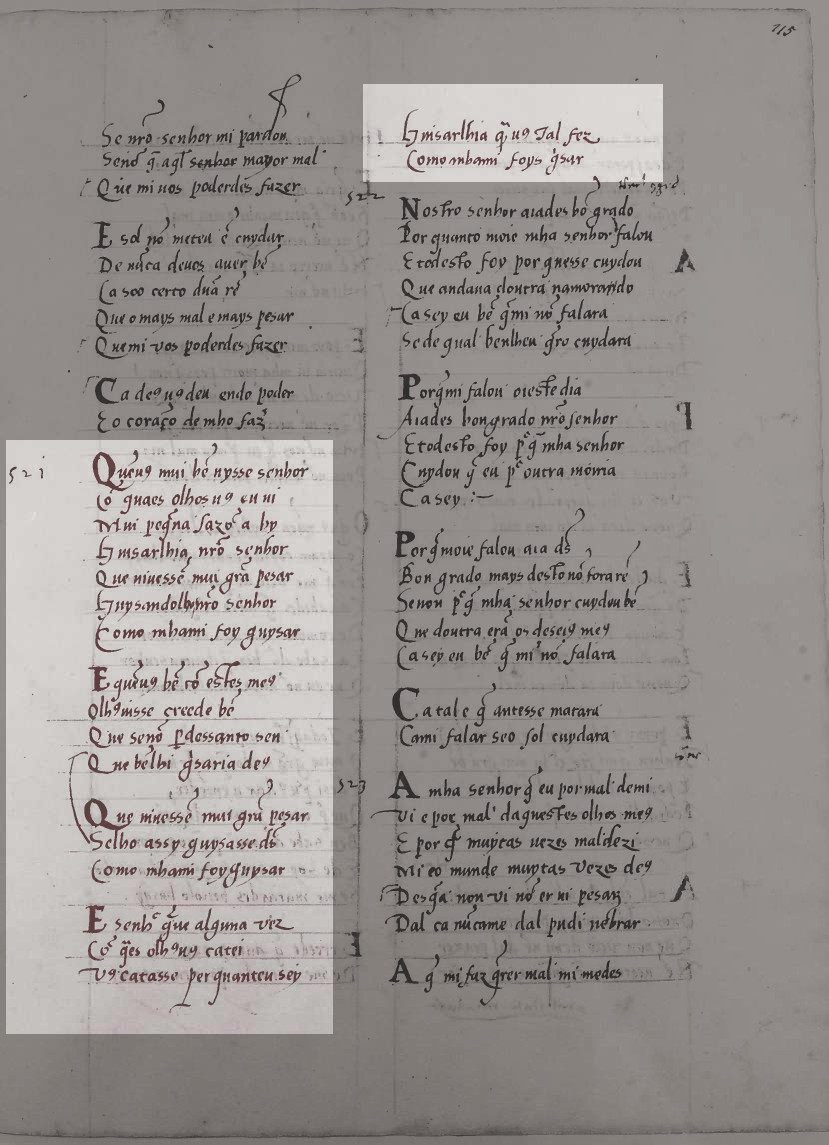 115
Se nr̃o senhor mi pardon
Senõ q̃ aq̃l senhor mayor mal
Que mi uos poderdes fazer
E sol nõ meteu ẽ cuydar
De nũca deuos auer bẽ
Ca soo certo dũa rẽ
Que o mays mal e mays pesar
Quemi vos poderdes fazer
Ca deꝯ uꝯ deu endo poder
Eo coraçõ de mho faz̃
521
Quẽuꝯ mui bẽ uysse senhor
Cõ quaes olhos uꝯ eu ui
Mui peq̃na sazõ a hy
Guisarlhia nr̃o senhor
Que uiuessẽ mui grã pesar
Guysandolho nr̃o senhor
Como mhami foy guysar
E quẽuꝯ bẽ cõ estes meꝯ
Olhꝯ uisse creede bẽ
Que senõ perdessanto sen
Que bẽ lhi g̃saria deꝯ
Que uiuessẽ mui grã pesar
Selho assy guysasse ds̃
Como mhami foy guysar
E senhˀ q̃ue alguna vez
Cõ q̃es olhꝯ uꝯ catei
Vꝯ catasse per quanteu sey
Guisarlhia q̃ uꝯ Tal fez
Como mhami foys g̃sar
522
Nostro senhor aiades bõ grado
Por quanto moie mha senhor falou
E todesto foy por quesse cuydou
Que andaua doutra namorando
Ca sey eu bẽ q̃mi nõ falara
Se de qual ben lheu q̃ro cuydara
A
Porq̃mi falou oieste dia
Aiades bon grado nr̃o senhor
E todesto foy pˀ q̃ mha senhor
Cuydou q̃ eu pˀ outra moiria
Ca sey :~
P
Porq̃ moie falou aia ds̃
Bon grado mays desto nõ fora rẽ
Senon pˀ q̃ mha senhor cuydou bẽ
Que doutra erã os deseiꝯ meꝯ
Ca sey eu bẽ q̃ mi nõ falara
Ca tal e q̃ antesse matara
Cami falar seo sol cuydara
523
A mha senhor q̃ eu por mal demi
Vi e por mal daquestes olhos meꝯ
E por q̃ muytas uezes maldezi
Mi eo munde muytas vezes deꝯ
Des q̃a non vi nõ er ui pesar
Dal ca nũcame dal pudi nẽbrar
A
A q̃ mi faz q̃rer mal mi medes